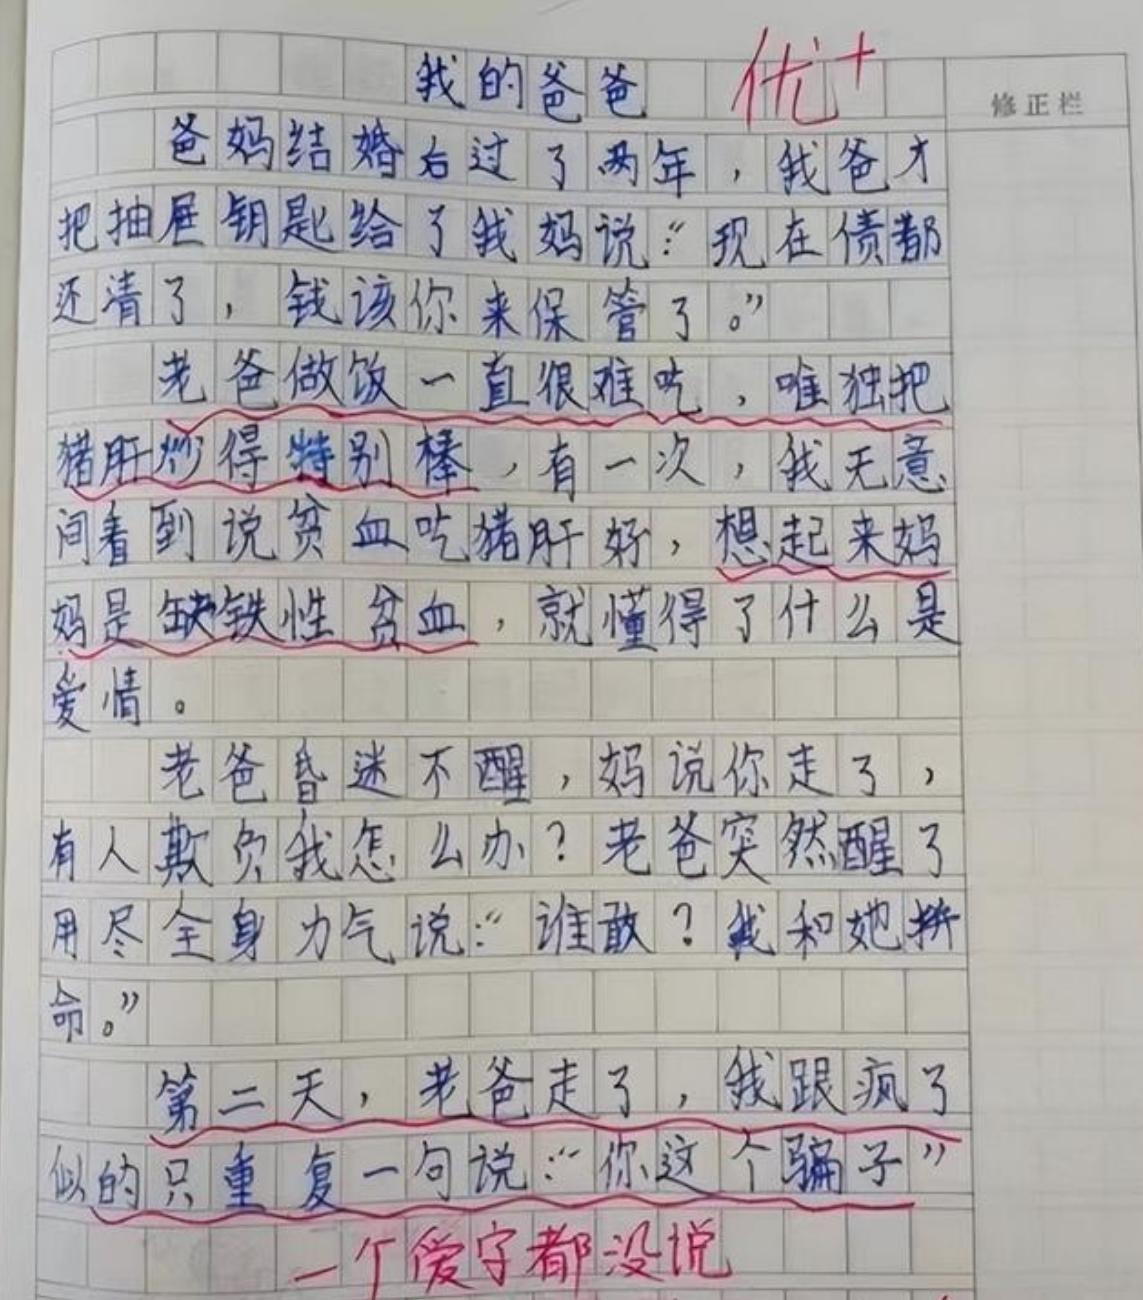 我的爸爸 优+
修正栏
爸妈结婚后过了两年，我爸才
把抽屉钥匙给了我妈说：“现在债都
还清了，钱该你来保管了。”
老爸做饭一直很难吃，唯独把
猪肝炒得特别棒，有一次，我无意
间看到说贫血吃猪肝好，想起来妈
妈是缺铁性贫血，就懂得了什么是
爱情。
老爸昏迷不醒，妈说你走了，
有人欺负我怎么办？老爸突然醒了
用尽全身力气说：“谁敢？我和她拚
命。”
第二天，老爸走了，我跟疯了
似的只重复一句说：“你这个骗子”
一个爱字都没说